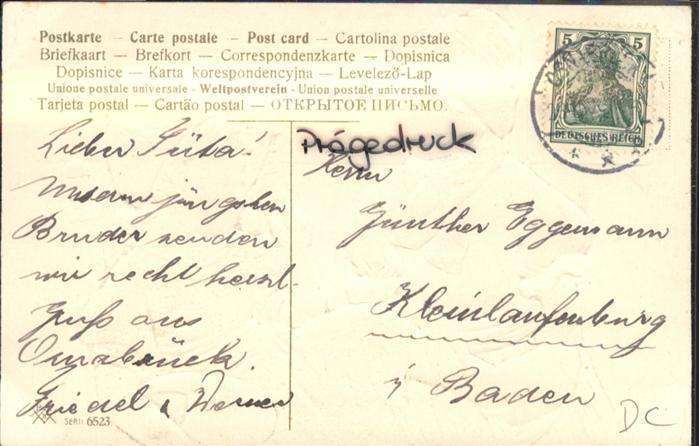 Postkarte – Carte postale – Post card – Cartolina postale
Briefkaart – Brefkort – Correspondenzkarte – Dopisnica
Dopisnice – Karta korespondencyjna – Levelező-Lap
Unione postale universale – Weltpostverein – Union postale universelle
Tarjeta postal – Cartão postal – ОТКРЫТОЕ ПИСЬМО.
5 5
DEUTSCHES REICH
Prägedruck
Lieber
Unserm jüngsten
Bruder senden
wir recht herzl.
Gruß aus
Osnabrück.
Friedel & Werner
Herrn
Günther Eggemann
Kleinlaufenburg
i/ Baden
SERIE 6523
DC